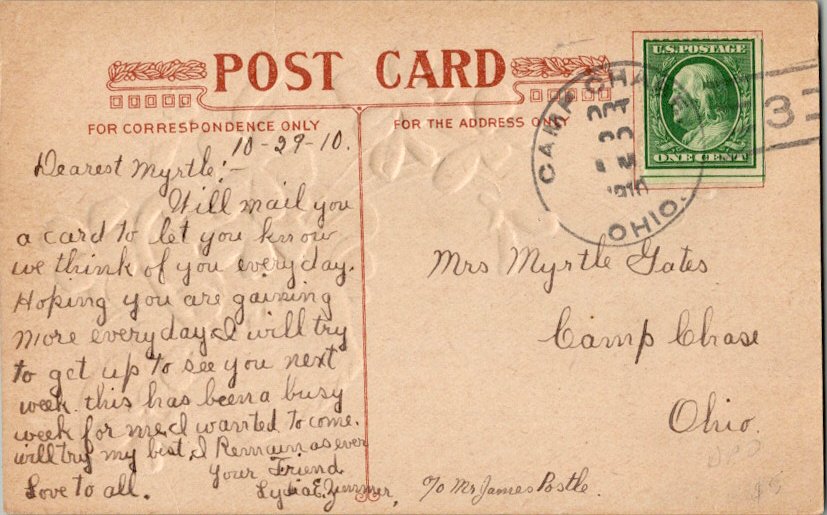 POST CARD
FOR CORRESPONDENCE ONLY
FOR THE ADDRESS ONLY
10-29-10.
Dearest Myrtle:-
Will mail you
a card to let you know
we think of you every day.
Hoping you are gaining
more every day I will try
to get up to see you next
week. this has been a busy
week for me I wanted to come.
will try my best, I Remain as ever
your Friend
Love to all. Lydia E.
U.S. POSTAGE
ONE CENT
CAMP CHASE
OCT
1910
OHIO.
3
Mrs Myrtle Gates
Camp Chase
Ohio.
℅ Mr James Postle.
$5